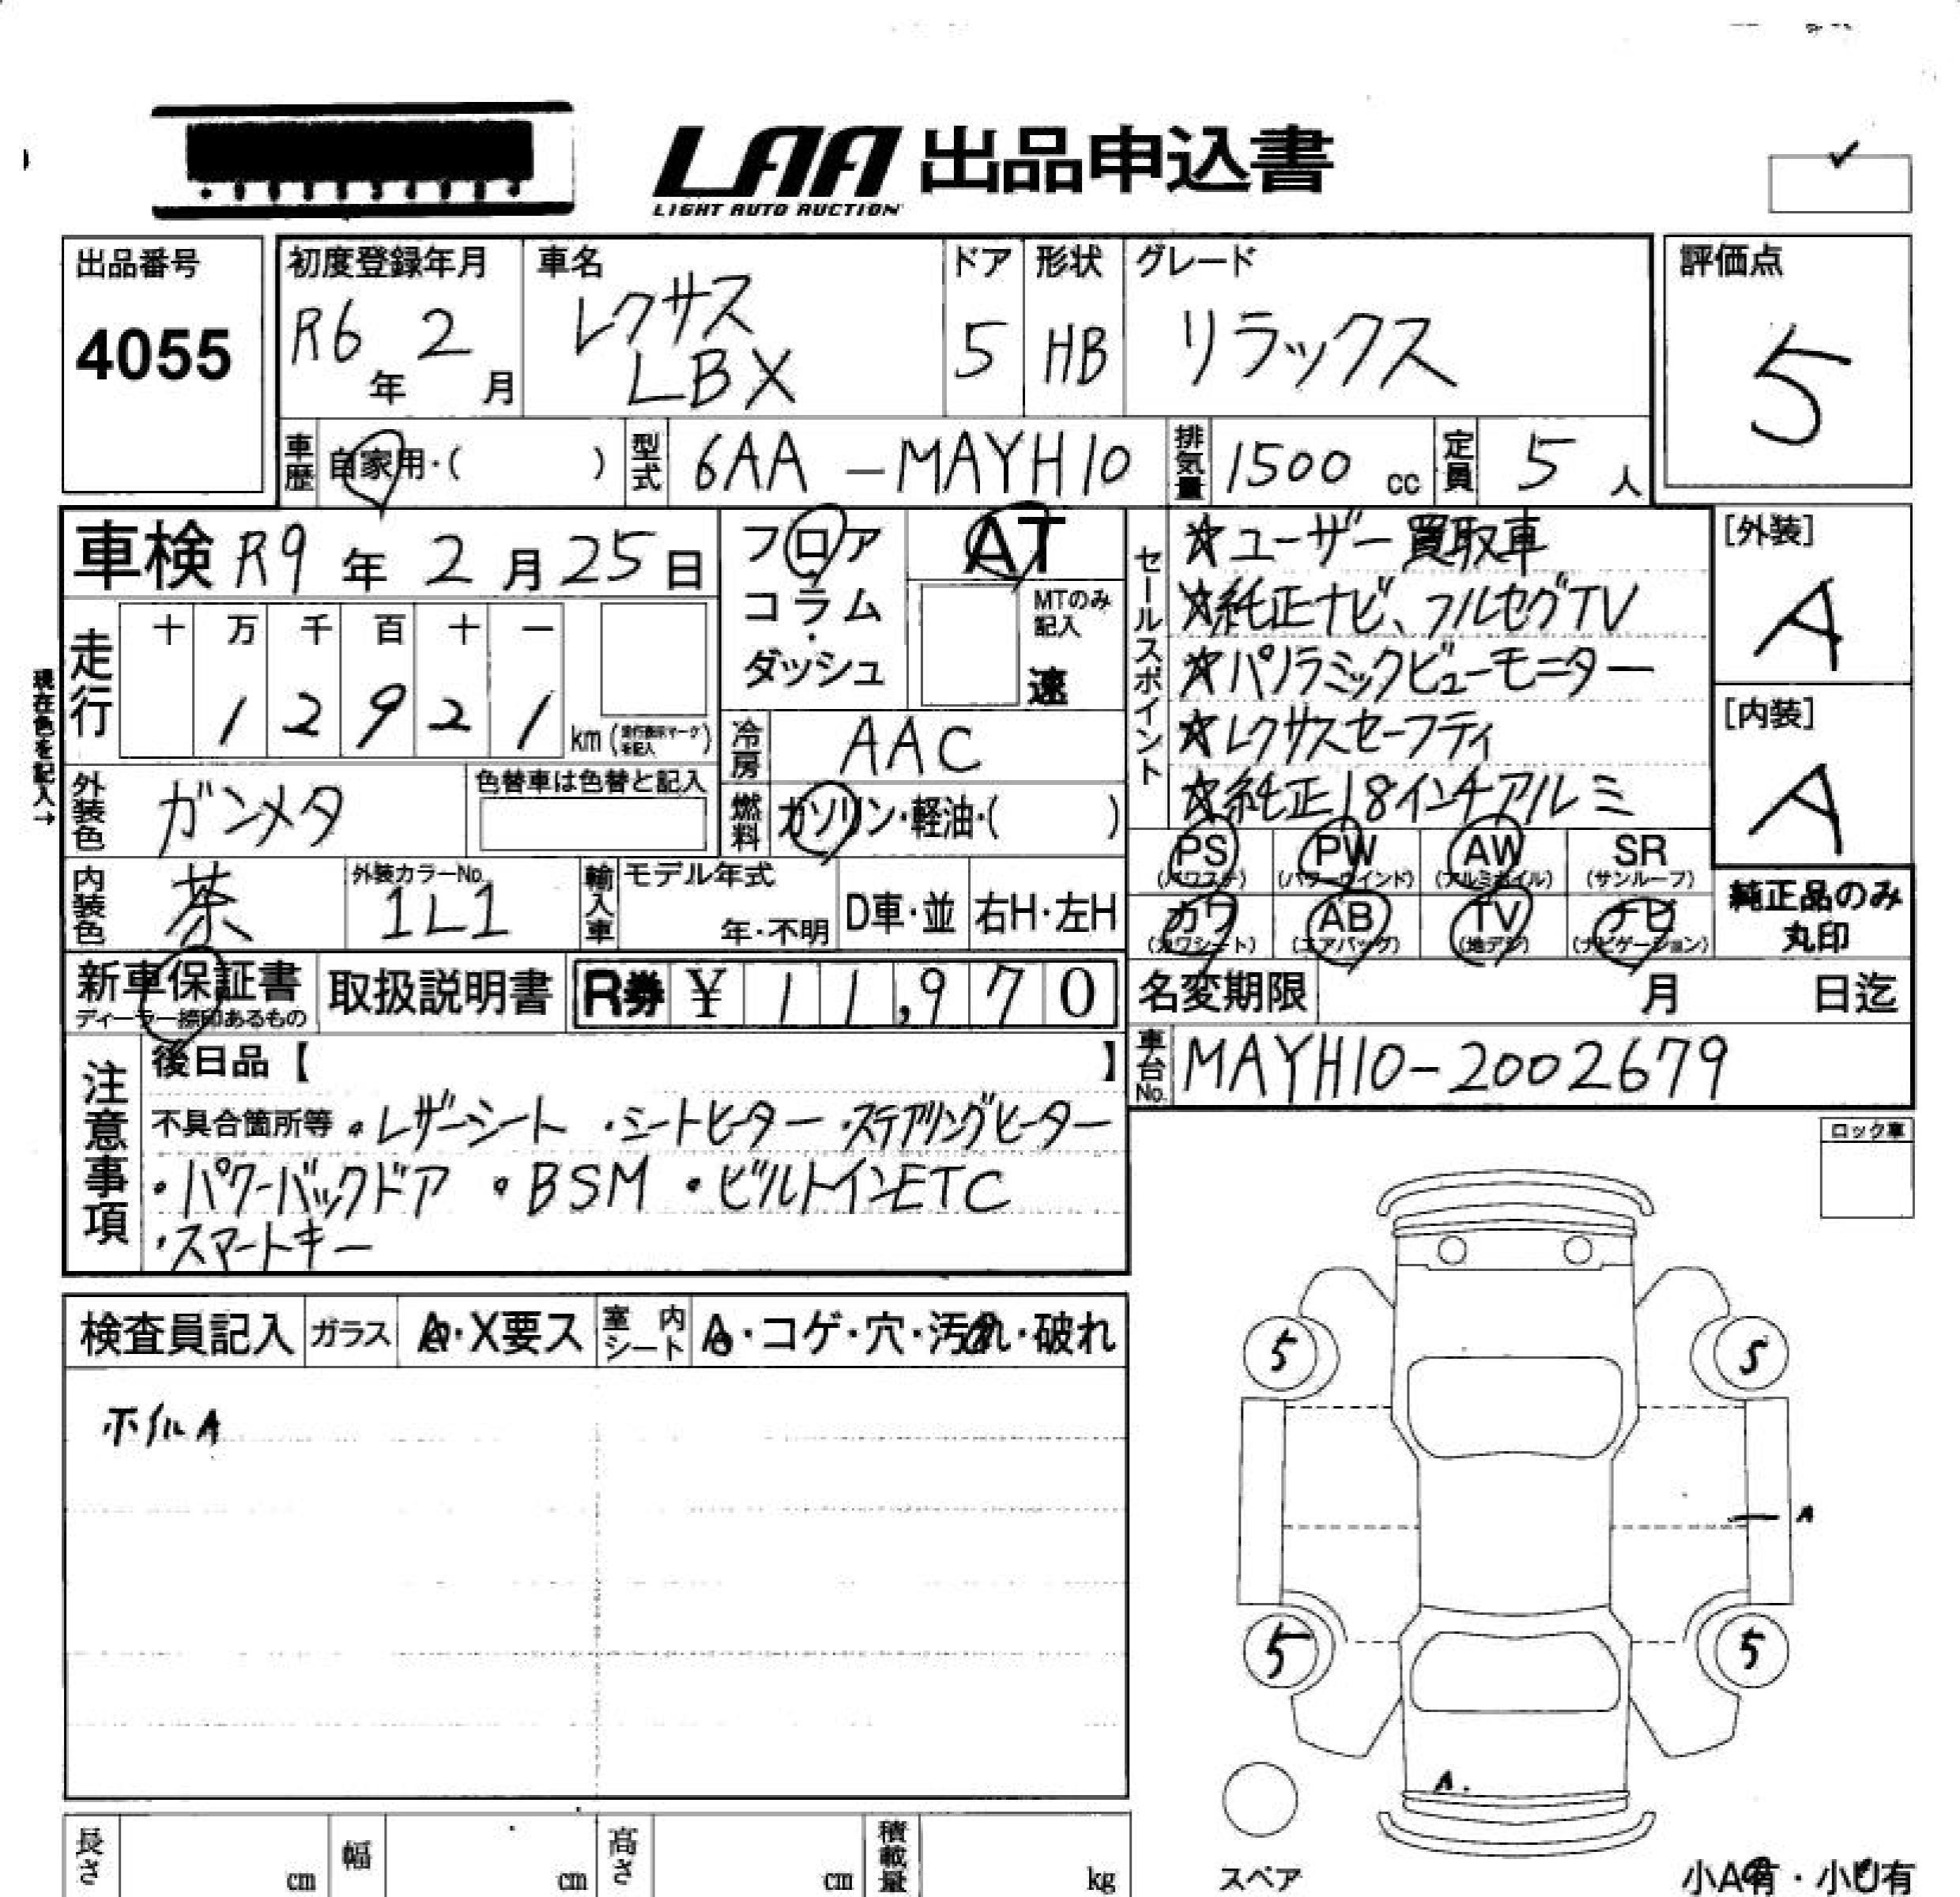 LAA 出品申込書
LIGHT AUTO AUCTION
出品番号
4055
初度登録年月
R6年 2月
車名
レクサス
LBX
ドア
5
形状
HB
グレード
リラックス
評価点
5
車歴 自家用・( )
型式 6AA-MAYH10
排気量 1500 cc
定員 5人
車検 R9年 2月 25日
フロア
コラム
・
ダッシュ
AT
MTのみ
記入
速
セールスポイント
☆ユーザー買取車
☆純正ナビ、フルセグTV
☆パノラミックビューモニター
☆レクサスセーフティ
☆純正18インチアルミ
[外装]
A
[内装]
A
現在色を記入→
走行
十 万 千 百 十 一
1 2 9 2 1
km (走行表示マークを記入)
冷房 AAC
外装色 ガンメタ
色替車は色替と記入
燃料 ガソリン・軽油・( )
PS
(パワステ)
PW
(パワーウインド)
AW
(アルミホイル)
SR
(サンルーフ)
内装色 茶
外装カラーNo.
1L1
輸入車
モデル年式
年・不明
D車・並
右H・左H
カワ
(カワシート)
AB
(エアバッグ)
TV
(地デジ)
ナビ
(ナビゲーション)
純正品のみ
丸印
新車保証書
ディーラー捺印あるもの
取扱説明書
R券 ¥ 11,970
名変期限 月 日迄
車台No. MAYH10-2002679
注意事項
後日品【 】
不具合箇所等 ・レザーシート ・シートヒーター ・ステアリングヒーター
・パワーバックドア ・BSM ・ビルトインETC
・スマートキー
ロック車
検査員記入
ガラス A・X要ス
室内シート A・コゲ・穴・汚れ・破れ
ホイルA
5
5
A
5
5
A
スペア
長さ cm
幅 cm
高さ cm
積載量 kg
小A有・小U有